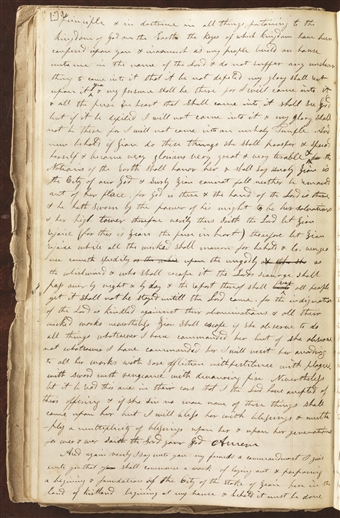 principle & in doctrine in all things pertaining to the
kingdom of God on the Earth the keys of which kingdom have been
confered upon you & inasmuch as my people build an house
unto me in the name of the Lord & do not suffer any unclean
thing to come into it that it be not defiled my glory shall rest
upon it & my presence shall be there for I will come into it
& all the pure in heart that shall come into it shall see God
but if it be defiled I will not come into it & my glory shall
not be there for I will not come into an unholy temple And
now behold if Zion do these things she shall prosper & spread
herself & become very glorious very great & very terable & the
Nations of the Earth shall honor her & shall say surely Zion is
the City of our God & surely Zion cannot fall neither be removed
out of her place for God is there & the hand of the Lord is there
& he hath sworn by the power of his might to be her salvation
& her high tower therefore verily thus saith the Lord let Zion
rejoice (for this is Zion the pure in heart) therefore let Zion
rejoice while all the wicked shall mourn for behold & lo venge
ance cometh speedily upon the ungodly as
the whirlwind & who shall escape it the Lords scourge shall
pass over by night & by day & the report thereof shall all people
yet it shall not be stayed untill the Lord come for the indignation
of the Lord is kindled against their abominations & all their
wicked works nevertheless Zion shall escape if she observe to do
all things whatsoever I have commanded her but if she observe
not whatsoever I have commanded her I will visit her according
to all her works with sore affliction with pestilence with plague
with sword with vengeance with devouring fire Nevertheless
let it be read this once in their ears that I the Lord have accepted of
their offering & if she sin no more none of these things shall
come upon her but I will bless her with blessings & multi
ply a multiplicity of blessings upon her & upon her generations
for ever & ever saith the Lord your God Amen
And again verily I say unto you my friends a commandment I give
unto you that you shall commence a work of laying out & preparing
a begining & foundation of the City of the stake of Zion here in the
land of kirtland begining at my house & behold it must be done